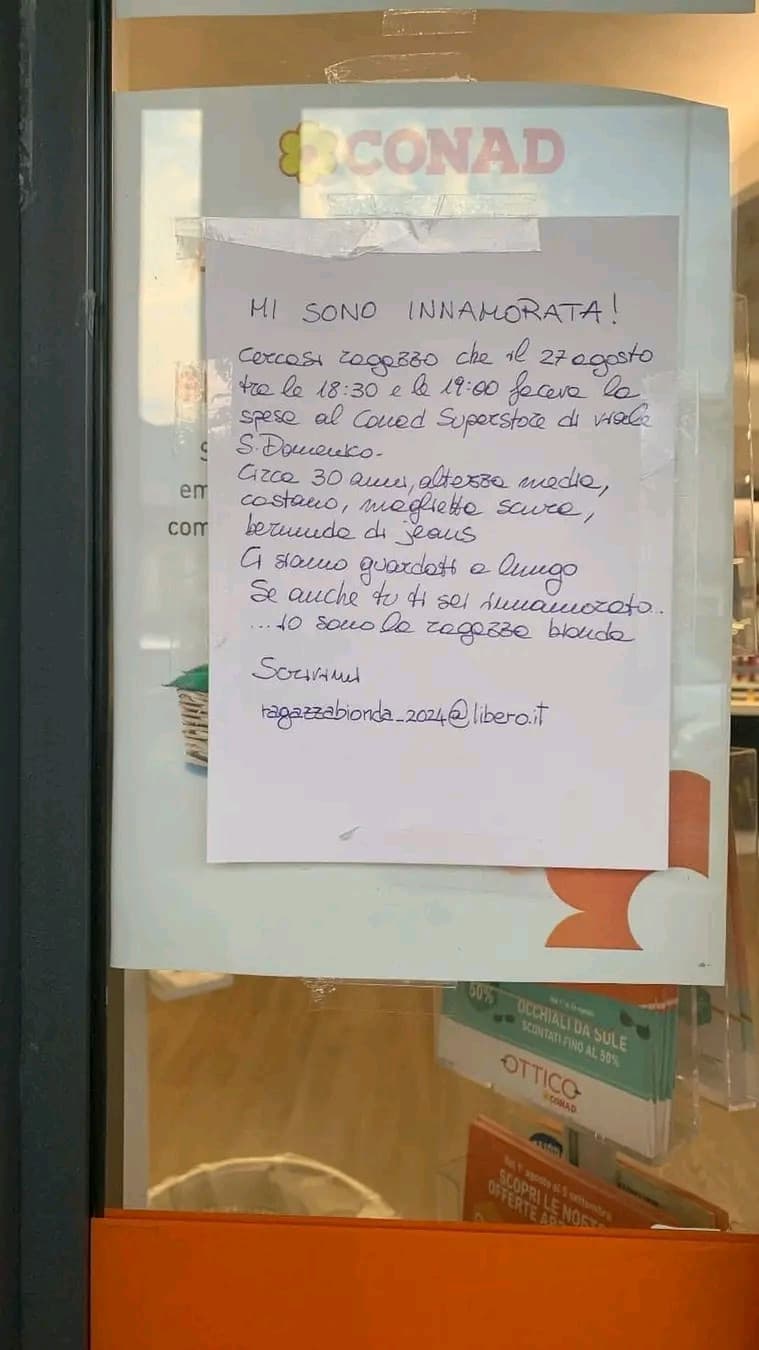 CONAD
MI SONO INNAMORATA!
Cercasi ragazzo che il 27 agosto
tra le 18:30 e le 19:00 faceva la
spesa al Conad Superstore di viale
S. Domenico.
Circa 30 anni, altezza media,
castano, maglietta scura,
bermuda di jeans
Ci siamo guardati a lungo
Se anche tu ti sei innamorato..
...io sono la ragazza bionda
Scrivimi
ragazzabionda_2024@libero.it
S
em
com
50%
OCCHIALI DA SOLE
SCONTATI FINO AL 50%
OTTICO
CONAD
Dal 1° agosto al 5 settembre
SCOPRI LE NOST
OFFERTE